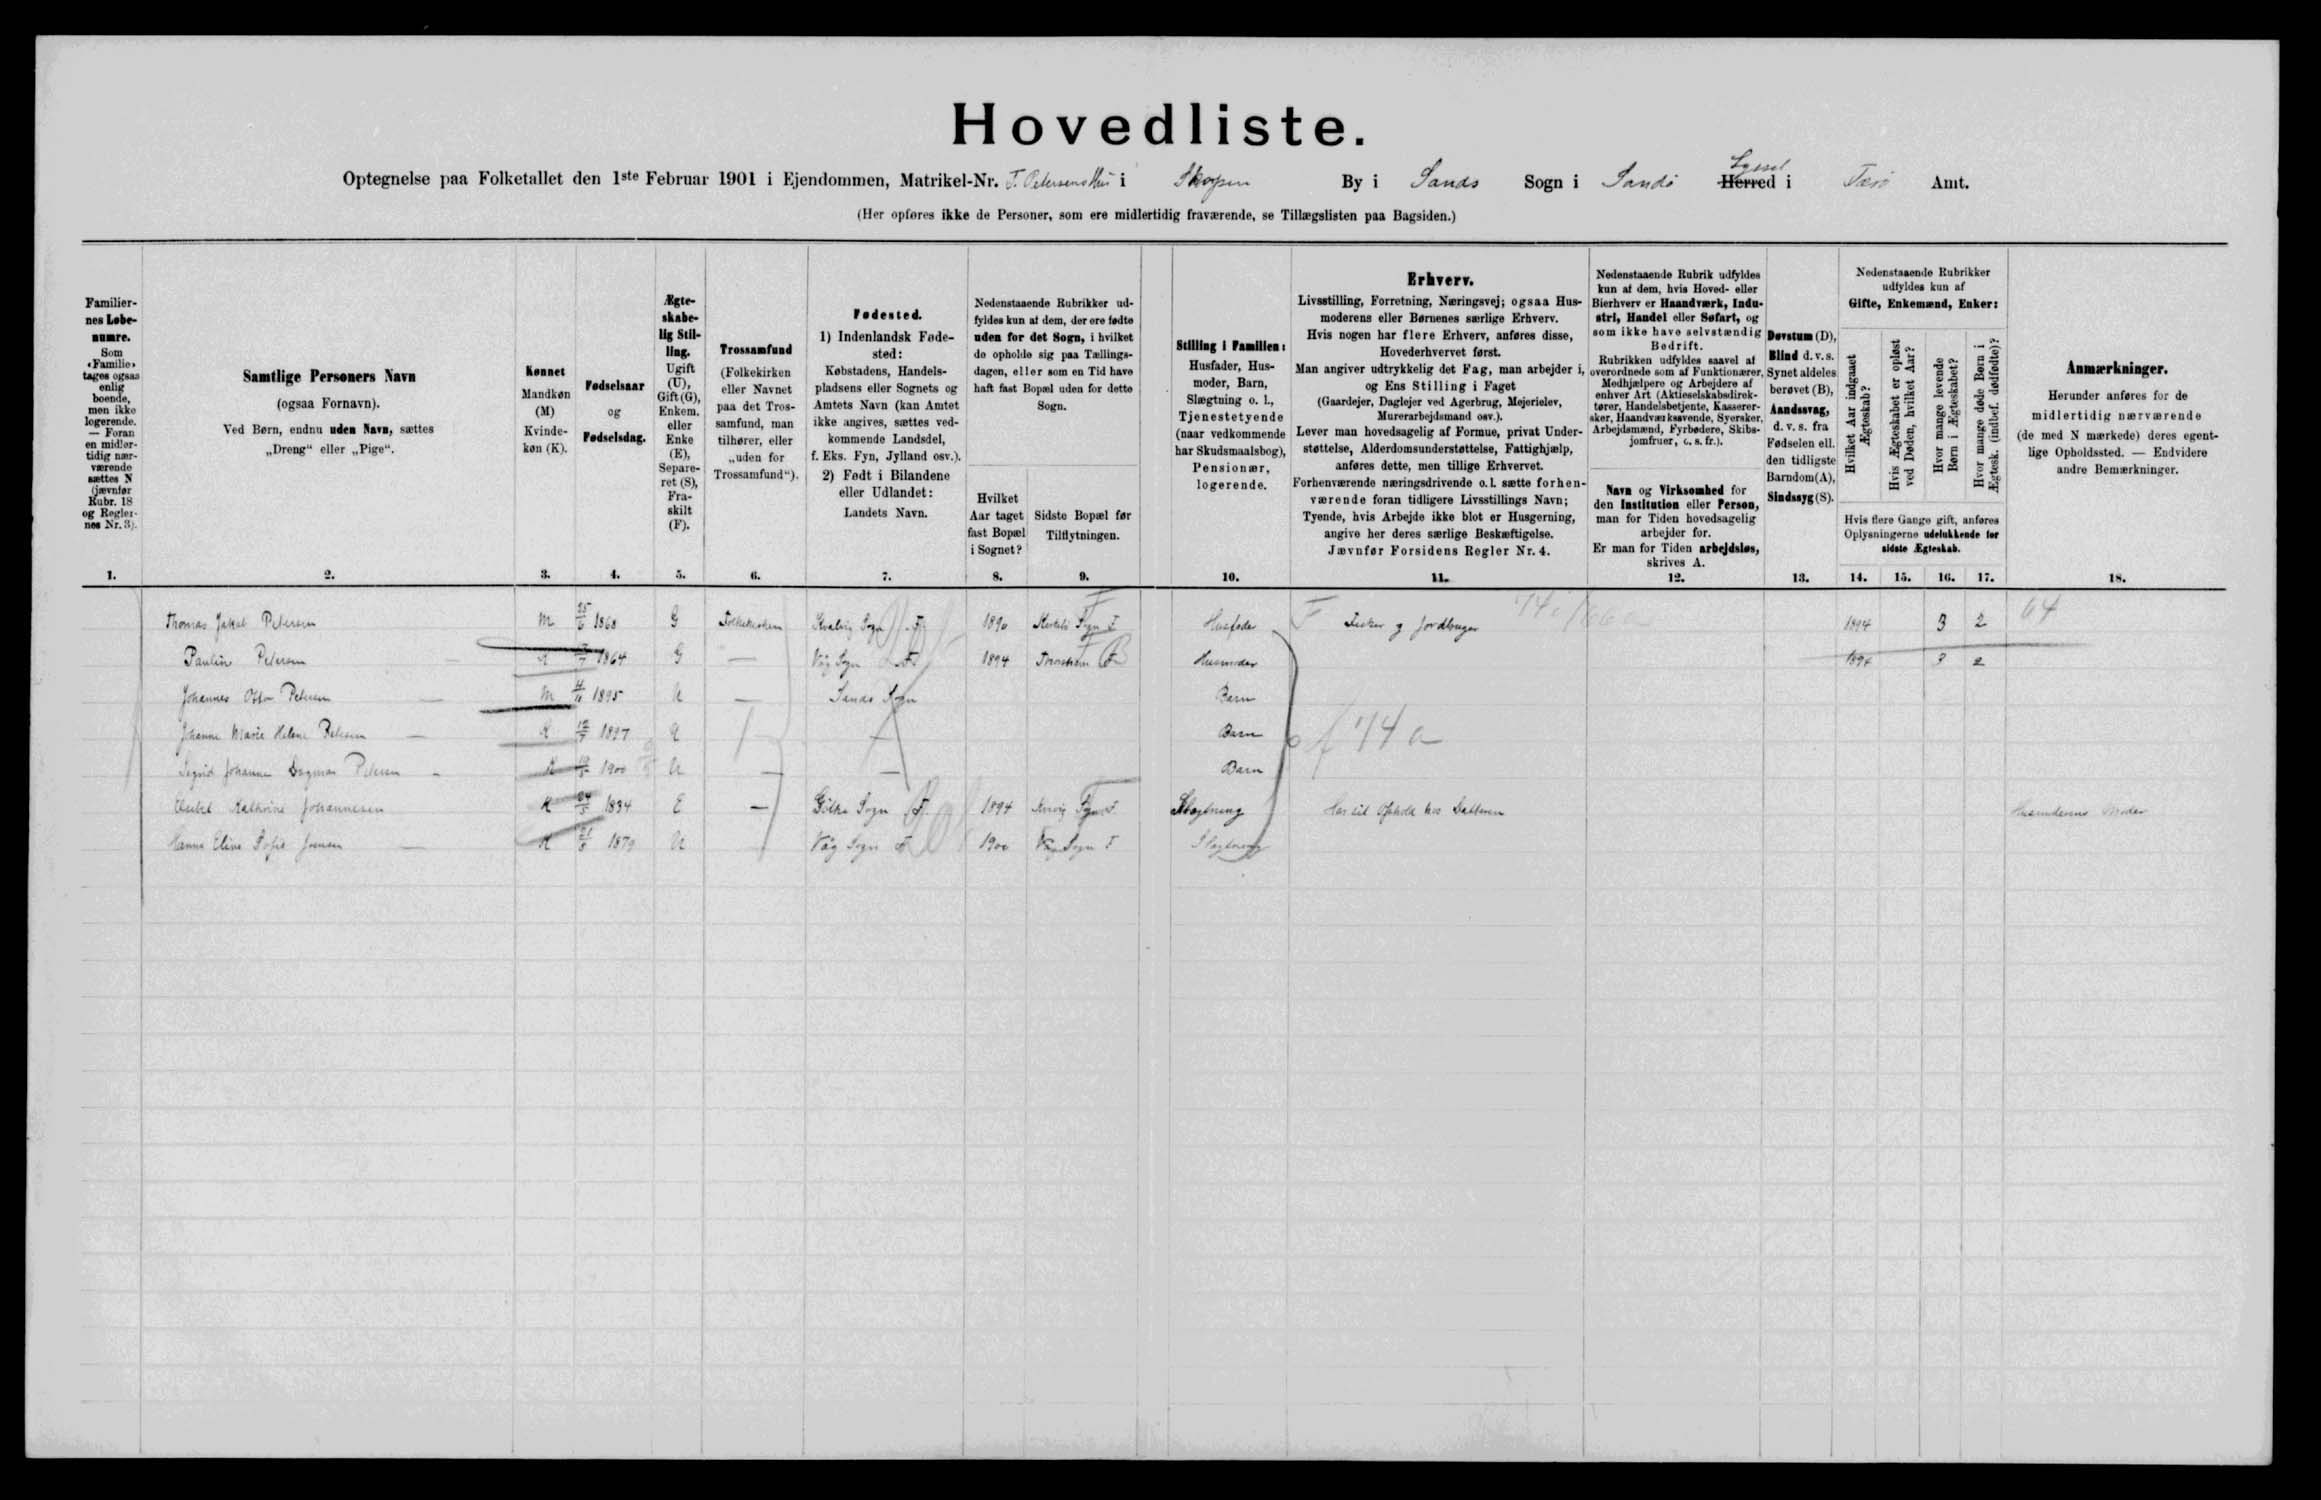 Hovedliste.
Optegnelse paa Folketallet den 1ste Februar 1901 i Ejendommen, Matrikel-Nr. T. Petersens Hus i Skopen By i Sands Sogn i Sandø Herred Syssel i Færø Amt.
(Her opføres ikke de Personer, som ere midlertidig fraværende, se Tillægslisten paa Bagsiden.)
Familiernes Løbenumre.
Som «Familie» tages ogsaa enlig boende, men ikke logerende. — Foran en midlertidig nærværende sættes N (jævnfør Rubr. 18 og Reglernes Nr. 3).
Samtlige Personers Navn
(ogsaa Fornavn).
Ved Børn, endnu uden Navn, sættes
„Dreng“ eller „Pige“.
Kønnet
Mandkøn (M)
Kvindekøn (K).
Fødselsaar
og
Fødselsdag.
Ægteskabelig Stilling.
Ugift (U), Gift (G), Enkem. eller Enke (E), Separeret (S), Fraskilt (F).
Trossamfund
(Folkekirken eller Navnet paa det Trossamfund, man tilhører, eller „uden for Trossamfund“).
Fødested.
1) Indenlandsk Fødested:
Købstadens, Handelspladsens eller Sognets og Amtets Navn (kan Amtet ikke angives, sættes vedkommende Landsdel, f. Eks. Fyn, Jylland osv.).
2) Født i Bilandene eller Udlandet:
Landets Navn.
Nedenstaaende Rubrikker udfyldes kun af dem, der ere fødte uden for det Sogn, i hvilket de opholde sig paa Tællingsdagen, eller som en Tid have haft fast Bopæl uden for dette Sogn.
Hvilket Aar taget fast Bopæl i Sognet?
Sidste Bopæl før Tilflytningen.
Stilling i Familien:
Husfader, Husmoder, Barn, Slægtning o. l., Tjenestetyende (naar vedkommende har Skudsmaalsbog), Pensionær, logerende.
Erhverv.
Livsstilling, Forretning, Næringsvej; ogsaa Husmoderens eller Børnenes særlige Erhverv.
Hvis nogen har flere Erhverv, anføres disse, Hovederhvervet først.
Man angiver udtrykkelig det Fag, man arbejder i, og Ens Stilling i Faget
(Gaardejer, Daglejer ved Agerbrug, Mejerielev, Murerarbejdsmand osv.).
Lever man hovedsagelig af Formue, privat Understøttelse, Alderdomsunderstøttelse, Fattighjælp, anføres dette, men tillige Erhvervet.
Forhenværende næringsdrivende o. l. sætte forhenværende foran tidligere Livsstillings Navn;
Tyende, hvis Arbejde ikke blot er Husgerning, angive her deres særlige Beskæftigelse.
Jævnfør Forsidens Regler Nr. 4.
Nedenstaaende Rubrik udfyldes kun af dem, hvis Hoved- eller Bierhverv er Haandværk, Industri, Handel eller Søfart, og som ikke have selvstændig Bedrift.
Rubrikken udfyldes saavel af overordnede som af Funktionærer, Medhjælpere og Arbejdere af enhver Art (Aktieselskabsdirektører, Handelsbetjente, Kasserersker, Haandværkssvende, Syersker, Arbejdsmænd, Fyrbødere, Skibsjomfruer, o. s. fr.).
Navn og Virksomhed for den Institution eller Person, man for Tiden hovedsagelig arbejder for.
Er man for Tiden arbejdsløs, skrives A.
Døvstum (D), Blind d. v. s. Synet aldeles berøvet (B), Aandssvag, d. v. s. fra Fødselen ell. den tidligste Barndom (A), Sindssyg (S).
Nedenstaaende Rubrikker udfyldes kun af
Gifte, Enkemænd, Enker:
Hvilket Aar indgaaet Ægteskab?
Hvis Ægteskabet er opløst ved Døden, hvilket Aar?
Hvor mange levende Børn i Ægteskabet?
Hvor mange døde Børn i Ægtesk. (indbef. dødfødte)?
Hvis flere Gange gift, anføres Oplysningerne udelukkende for sidste Ægteskab.
Anmærkninger.
Herunder anføres for de midlertidig nærværende (de med N mærkede) deres egentlige Opholdssted. — Endvidere andre Bemærkninger.
1. 2. 3. 4. 5. 6. 7. 8. 9. 10. 11. 12. 13. 14. 15. 16. 17. 18.
Thomas Jakob Petersen M 25/6 1868 G Folkekirken Kvalvig Sogn F. 1890 Sogn F Husfader F Fisker og Jordbruger 1894 3 2 64
Pauline Petersen K 1864 G — Våg Sogn F. 1894 Thorshavn F Husmoder 1894 3 2
Johannes Petersen M 1895 U — Sands Sogn Barn
Johanne Marie Helene Petersen — K 1897 U — Barn 74 a
Sigrid Johanne Dagmar Petersen K 1900 U — — Barn
Kathrine Johannesen K 24/5 1834 E — Sogn F. 1894 Sogn F. Slægtning Har sit Ophold hos Datteren Husmoderens Moder
Hanna Elina Sofie Joensen — K 21/8 1879 U Våg Sogn F 1900 Våg Sogn F Slægtning